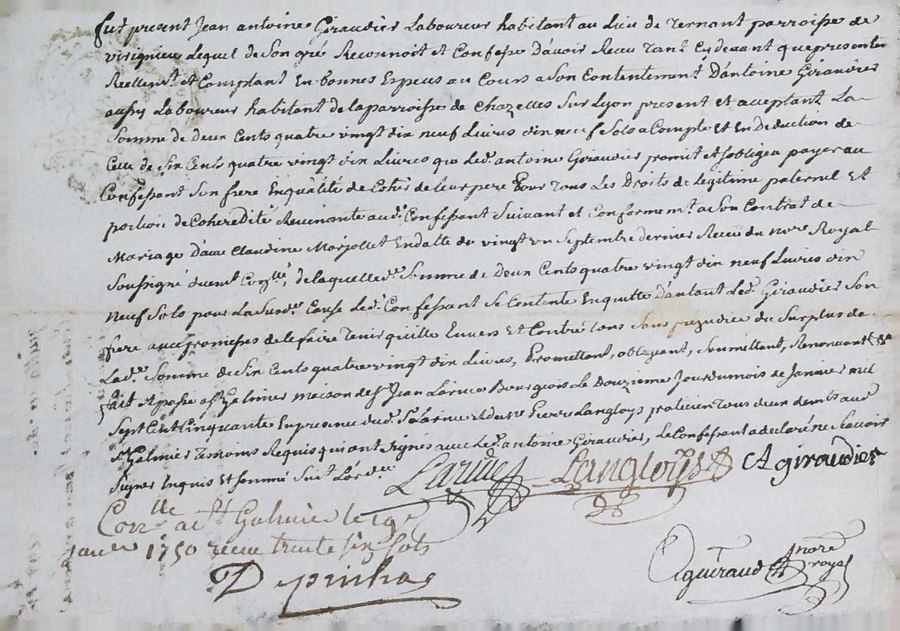 fut present Jean antoine Giraudier Laboureur habitant au Lieu de Ternant parroisse de
virignieu Lequel de Son gré Reconnoit et Confesse d'avoir Receu tant Cy devant que presentem
Reellemt et Comptant En bonnes Especes au Cours a Son Contentement D'antoine Giraudier
aussy Laboureur habitant de la parroisse de Chazelles Sur Lyon present et acceptant La
Somme de Deux Cents quatre vingt dix neuf Livres dix neuf Sols a Compte et En Deduction de
Celle de Six Cents quatre vingt dix Livres que Led. antoine Giraudier promit et Sobligea payer au
Confessant Son frere En qualité de de Leur pere Pour Tous Les Droits de Legitime paternel Et
portion de Coheredité Revenante aud. Confessant Suivant et Conformemt a Son Contrat de
Mariage D'avec Claudine Marjollet En datte du vingt un Septembre dernier Receu du nore Royal
Soussigné duemt Conllé, de laquelle de. Somme de Deux Cents quatre vingt dix neuf Livres dix
Neuf Sols pour La Susde. Cause Led. Confessant Se Contente En quitte D'autant Led. Giraudier Son
frere avec promesses de le faire Tenir quitte Envers Et Contre tous Sans prejudice du Surplus de
Lade. Somme de Six Cents quatre vingt dix Livres, Promettant, obligeant, Soumettant, Renonceant &
fait Et passé a St Galmier maison de Sr Jean Larue Bourgeois Le Douzieme Jour du mois de Janvier mil
Sept Cent Cinquante En presence dud. Sr Larue Et de Sr Pierre Langloys praticien Tous deux demts aud
St Galmier Temoins Requis qui ont Signés avec Led. antoine Giraudier, Le Confessant a declaré ne Scavoir
Signer Enquis Et Sommé Suivt L'orde.
Larue Langloys A giraudier
Conlle a St Galmier le 19e
janer 1750 receu trente six sols
Depinhac
Aguiraud Nore royal